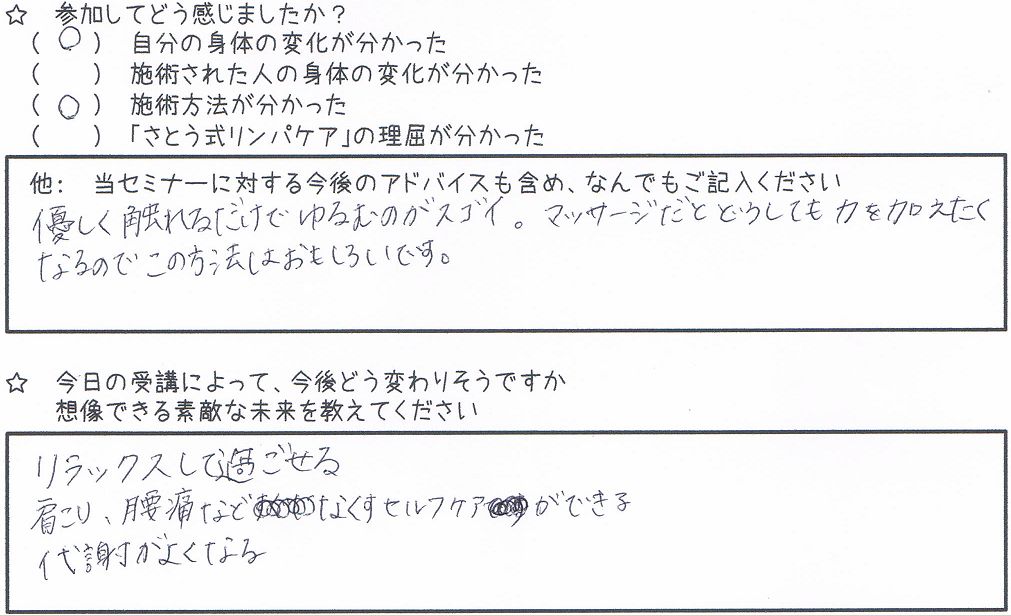 ☆ 参加してどう感じましたか？
(○) 自分の身体の変化が分かった
( ) 施術された人の身体の変化が分かった
(○) 施術方法が分かった
( ) 「さとう式リンパケア」の理屈が分かった
他: 当セミナーに対する今後のアドバイスも含め、なんでもご記入ください
優しく触れるだけでゆるむのがスゴイ。マッサージだとどうしても力を加えたく
なるのでこの方法はおもしろいです。
☆ 今日の受講によって、今後どう変わりそうですか
想像できる素敵な未来を教えてください
リラックスして過ごせる
肩こり、腰痛などなくすセルフケアができる
代謝がよくなる